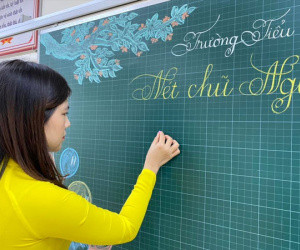 Trường Tiểu
Nét chữ Ng